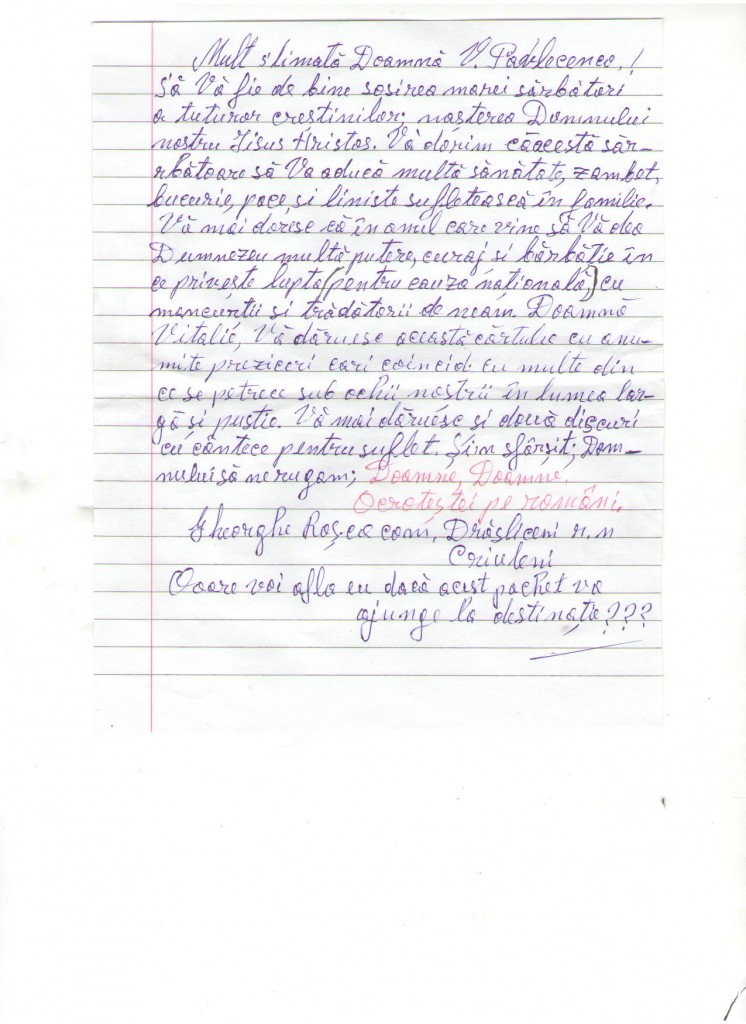 Mult stimată Doamnă V. Pavlecenco,!
Să Vă fie de bine sosirea marei sărbători
a tuturor creștinilor; nașterea Domnului
nostru Iisus Hristos. Vă dorim căacestă săr-
rbătoare să Va aducă multă sănătate, zambet,
bucurie, pace, și liniste sufletească în familie.
Vă mai doresc că în anul care vine să Vă dea
Dumnezeu multă putere, curaj si bărbăție în
ce privește lupta (pentru cauza națională,) cu
mancurții și trădătorii de neam. Doamnă
Vitalie, Vă dăruiesc această cărtulie cu anu-
mite preziceri cari coincid cu multe din
ce se petrece sub ochii nostrii în lumea lar-
gă și pustie. Vă mai dăruesc si două discuri
cu cântece pentru suflet. Șiîm sfârșit; Dom-
nului să ne rugam; Doamne, Doamne.
Ocroteștei pe români.
Gheorghe Roșca com, Drăsliceni r.n
Criuleni
Ooare voi afla eu dacă acest pachet va
ajunge la destinație???